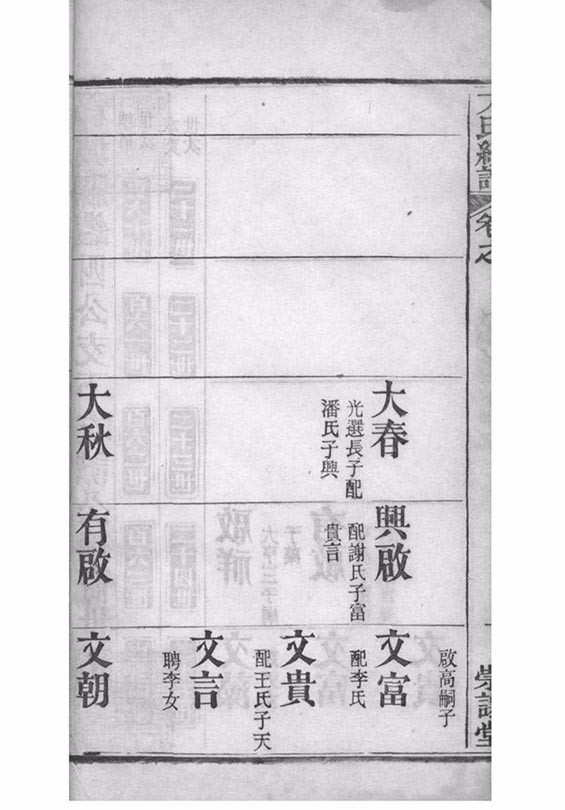 卷之
大春
光選長子配
潘氏子興
大秋
興啟
配謝氏子富
貴言
有啟
啟高嗣子
文富
配李氏
文貴
配王氏子天
文言
聘李女
文朝